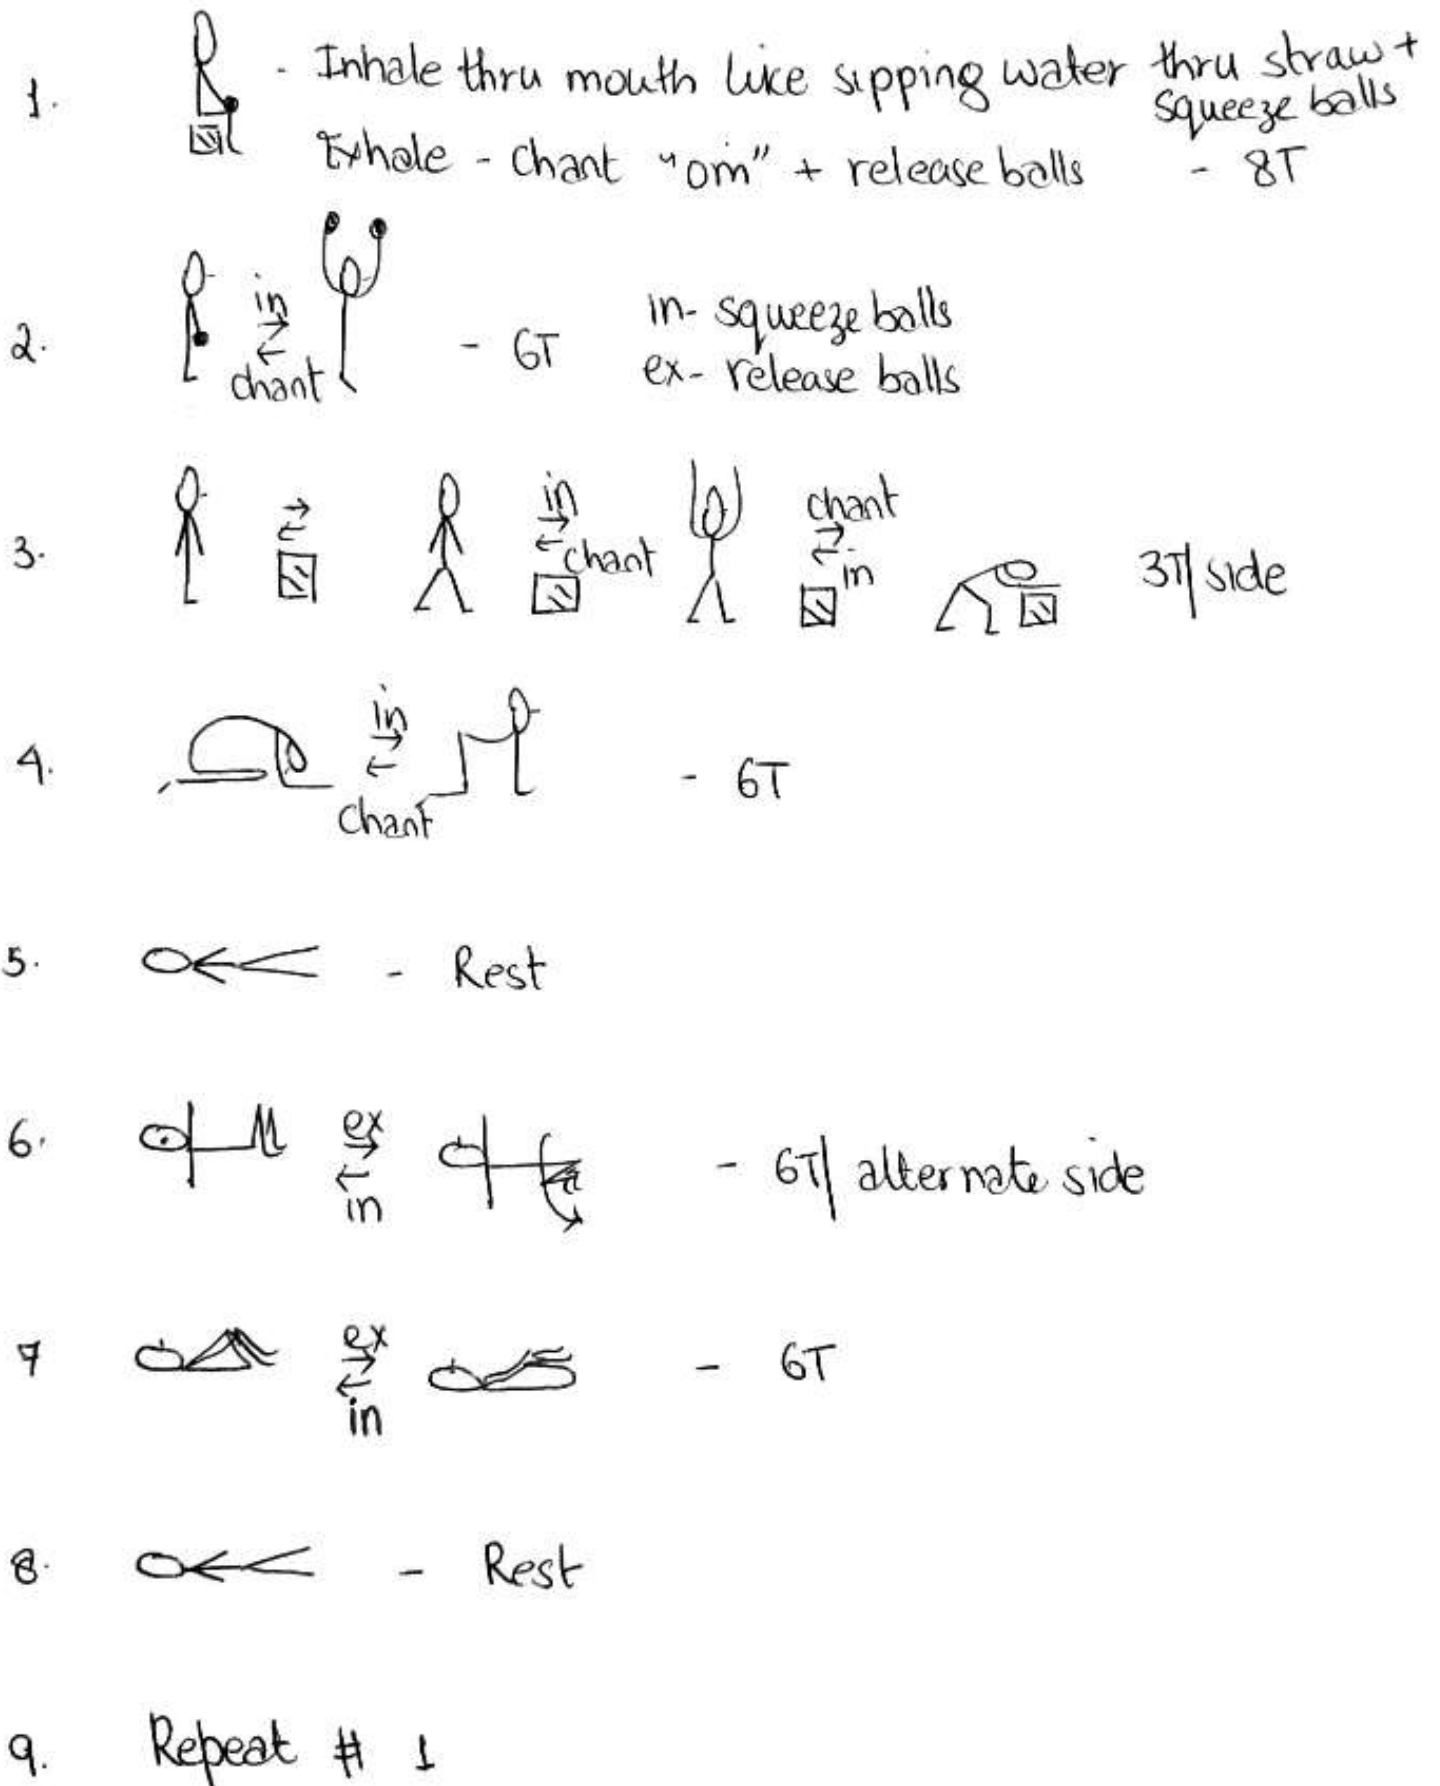 1. - Inhale thru mouth like sipping water thru straw +
squeeze balls
Exhale - Chant "om" + release balls - 8T
2. in
chant
- 6T
in- squeeze balls
ex- release balls
3. in
chant
chant
in
3T/side
4. in
chant
- 6T
5. - Rest
6. ex
in
- 6T/ alternate side
7 ex
in
- 6T
8. - Rest
9. Repeat # 1